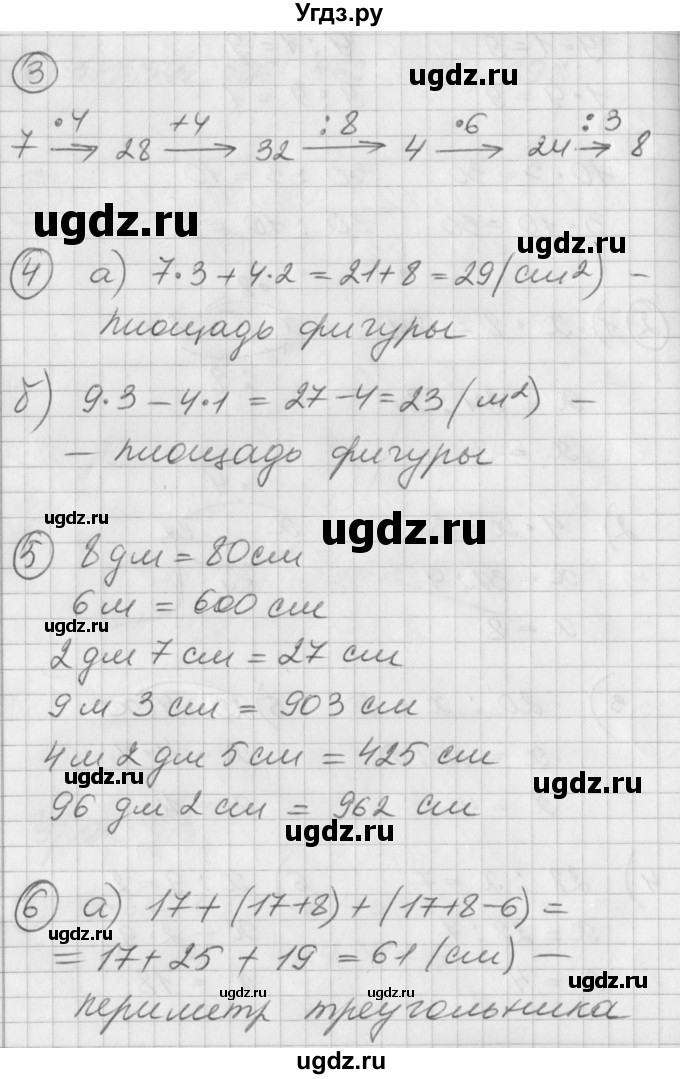 Угдз.ру
3
ugdz.ru
7 ·4→ 28 +4→ 32 :8→ 4 ·6→ 24 :3→ 8
ugdz.ru
ugdz.ru
4 а) 7·3+4·2=21+8=29(см2) –
площадь фигуры
б) 9·3–4·1=27–4=23(м2) –
– площадь фигуры
ugdz.ru
ugdz.ru
5 8 дм = 80 см
6 м = 600 см
ugdz.ru
2 дм 7 см = 27 см
9 м 3 см = 903 см
4 м 2 дм 5 см = 425 см
ugdz.ru
ugdz.ru
96 дм 2 см = 962 см
ugdz.ru
6 а) 17+(17+8)+(17+8-6)=
ugdz.ru
=17+25+19=61(см) —
ugdz.ru
ugdz.ru
ugdz.ru
периметр треугольника
ugdz.ru